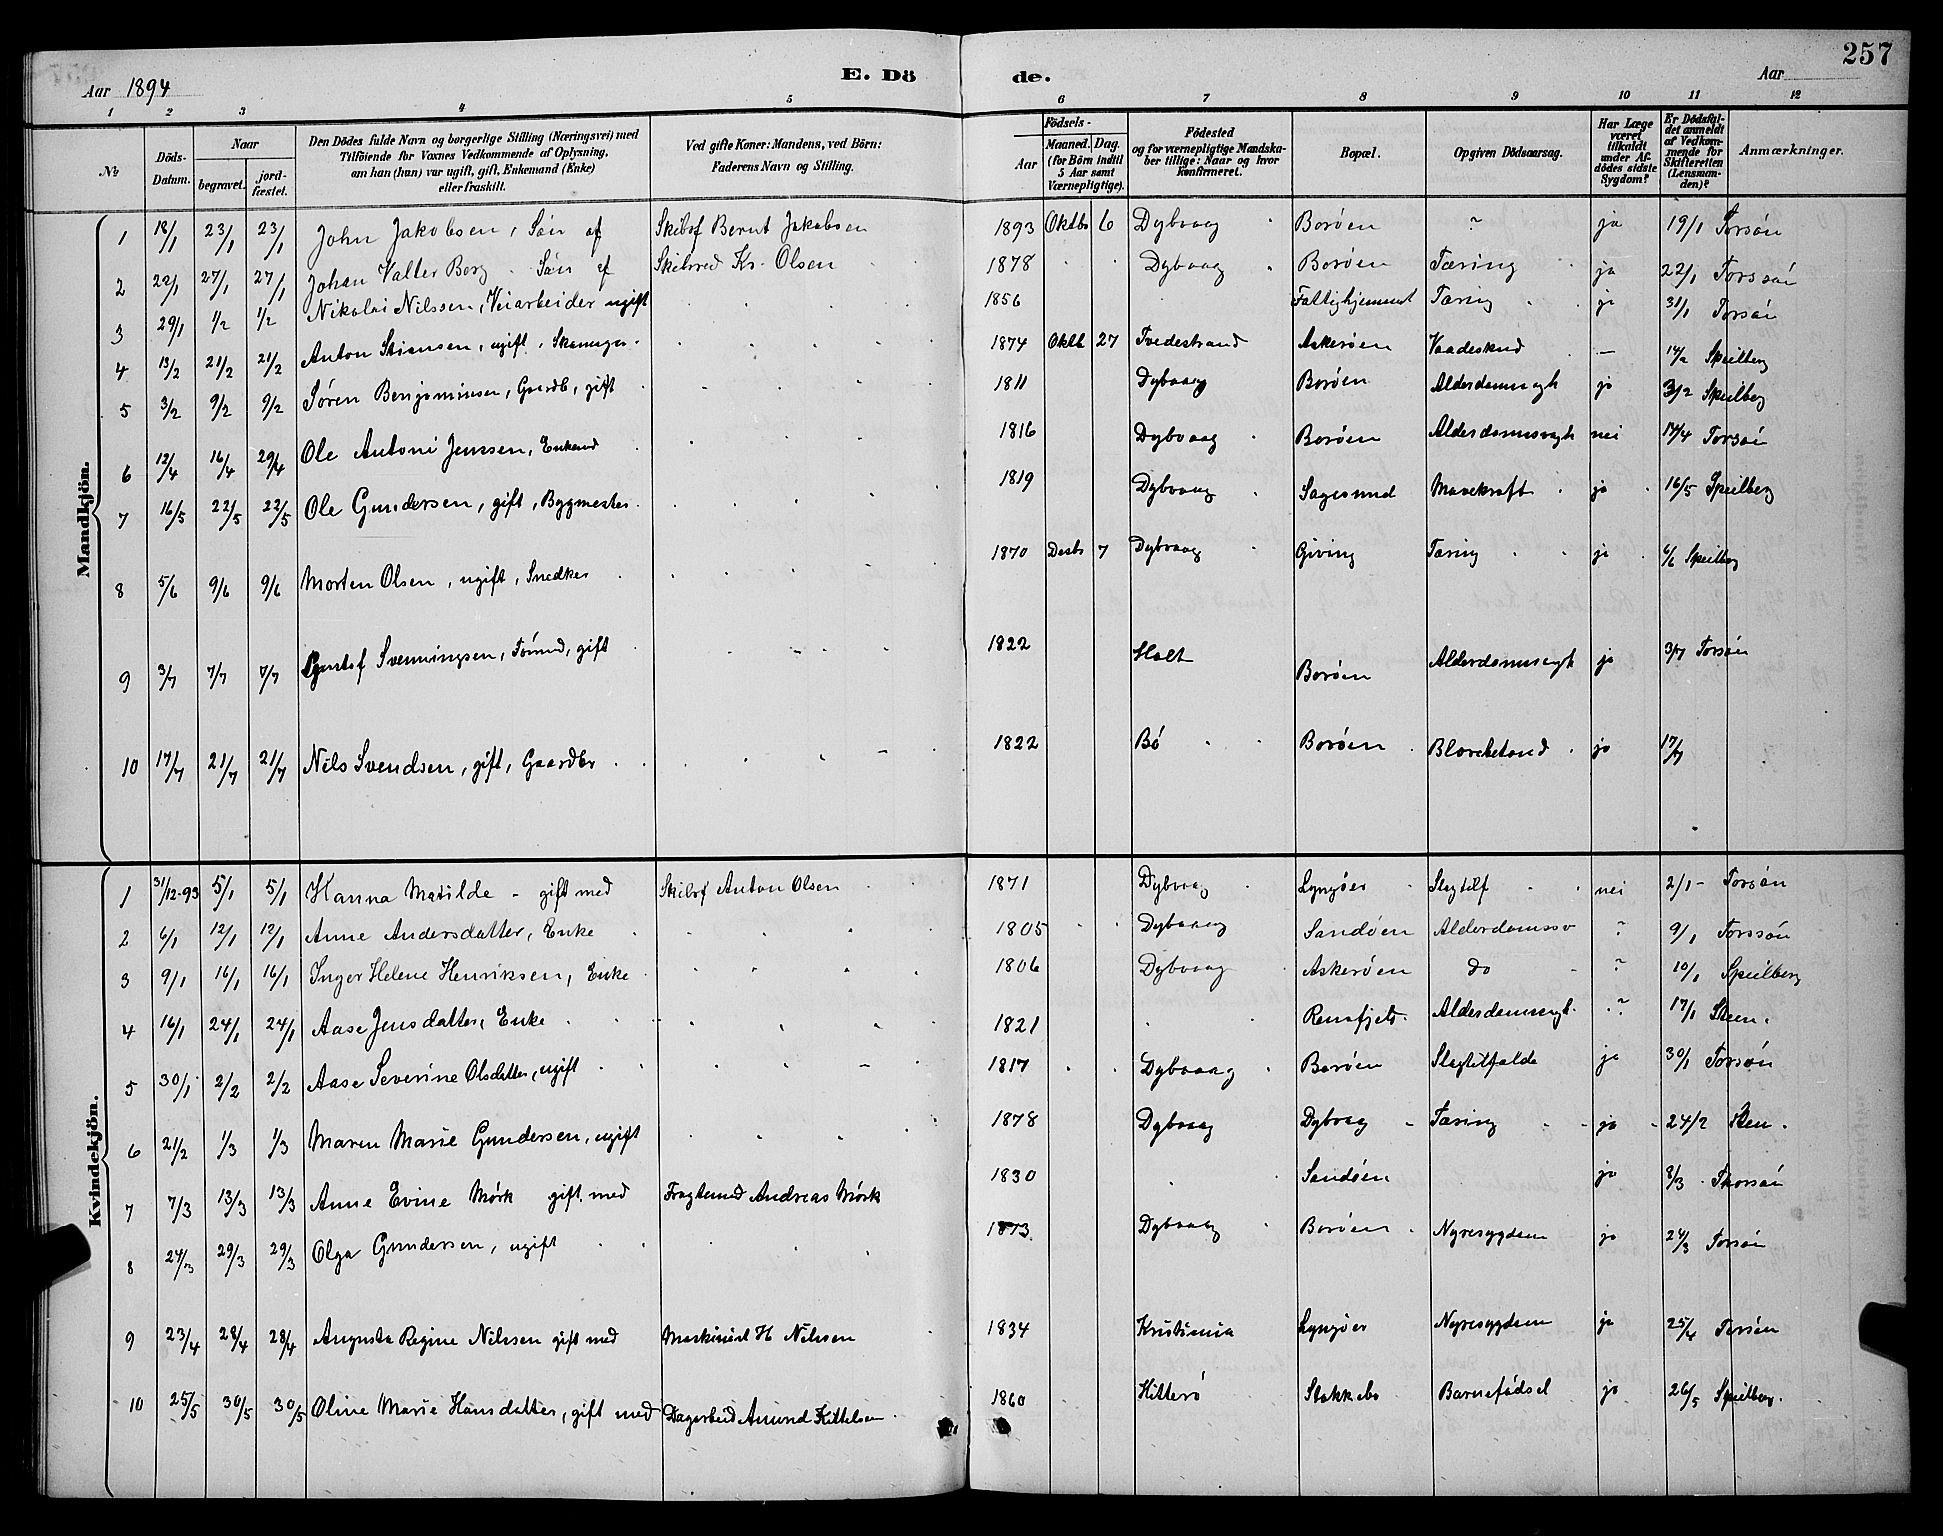 257
Aar 1894 E. Dö de. Aar
1 2 3 4 5 6 7 8 9 10 11 12
№ Döds-Datum. Naar begravet. jord-fæstet. Den Dödes fulde Navn og borgerlige Stilling (Næringsvei) med Tilföiende for Voxnes Vedkommende af Oplysning, om han (hun) var ugift, gift, Enkemand (Enke) eller fraskilt. Ved gifte Koner: Mandens, ved Börn: Faderens Navn og Stilling. Födsels- Aar Maaned. Dag. (for Börn indtil 5 Aar samt Værnepligtige). Födested og for værnepligtige Mandskaber tillige: Naar og hvor konfirmeret. Bopæl. Opgiven Dödsaarsag. Har Læge været tilkaldt under Afdödes sidste Sygdom? Er Dödsfaldet anmeldt af Vedkommende for Skifteretten (Lensmanden)? Anmærkninger.
Mandkjön.
1 18/1 23/1 23/1 John Jakobsen, Søn af Skibsf Bernt Jakobsen 1893 Oktbr 6 Dybvaag Borøen ? ja 19/1 Torsøn
2 22/1 27/1 27/1 Johan Valter Borg - Søn af Skibsred Kr. Olsen 1878 Dybvaag Borøen Tæring ja 22/1 Torssøn
3 29/1 1/2 1/2 Nikolai Nilssen, Veiarbeider ugift 1856 Fattighjemmet Tæring ja 31/1 Torsøn
4 13/2 21/2 21/2 Anton Stiansen, ugift, 1874 Oktb 27 Tvedestrand Askerøen Vaadeskud — 14/2 Speilberg
5 3/2 9/2 9/2 Søren Benjaminsen, Gaardb, gift 1811 Dybvaag Borøen Alderdomssvgh ja 3/2 Speilberg
6 12/4 16/4 29/4 Ole Antoni Jenssen, Enkemd 1816 Dybvaag Borøen Alderdomssvagh nei 14/4 Torsøn
7 16/5 22/5 22/5 Ole Gundersen, gift, Bygmester 1819 Dybvaag Sagesund Mavekræft ja 16/5 Speilberg
8 5/6 9/6 9/6 Morten Olsen, ugift, Snedker 1870 Desbr 7 Dybvaag Giving Tæring ja 6/6 Speilberg
9 3/7 7/7 7/7 Gustaf Svenningsen, Tømmd, gift 1822 Holt Borøen Alderdomssvgh ja 3/7 Torsøn
10 17/7 21/7 21/7 Nils Svendsen, gift, Gaardbr 1822 Bø Borøen ja 17/7
Kvindekjön.
1 31/12-93 5/1 5/1 Hanna Matilde - gift med Skibsf Anton Olsen 1871 Dybvaag Lyngøer Slagtilf nei 2/1 - Torsøn
2 6/1 12/1 12/1 Anne Andersdatter, Enke 1805 Dybvaag Sandøen Alderdomssv ? 9/1 Torssøn
3 9/1 16/1 16/1 Inger Helene Henriksen, Enke 1806 Dybvaag Askerøen do ? 10/1 Speilberg
4 16/1 24/1 24/1 Aase Jensdatter, Enke 1821 Alderdomssvgt. ? 17/1 Steen.
5 30/1 2/2 2/2 Aase Severine Olsdatter, ugift 1817 Dybvaag Borøen Slagtilfælde ja 30/1 Torsøn
6 21/2 1/3 1/3 Maren Marie Gundersen, ugift 1878 Dybvaag Dybvag Tæring ja 24/2 Sten.
7 7/3 13/3 13/3 Anne Evine Mørk gift med Fragtemd Andreas Mørk 1830 Sandøen ja 8/3 Thorsøn
8 24/3 29/3 29/3 Olga Gundersen, ugift 1873 Dybvaag Borøen Nyresygdom ja 24/3 Torsøn
9 23/4 28/4 28/4 Augusta Regine Nilssen gift med Maskinist H Nilssen 1834 Kristiania Lyngøer Nyresygdom ja 25/4 Torsøn
10 25/5 30/5 30/5 Oline Marie Hansdatter, gift med Dagarbeid Amund Kittelsen 1860 Hitterø Stokkebo Barnefødsel ja 26/5 Speilberg.